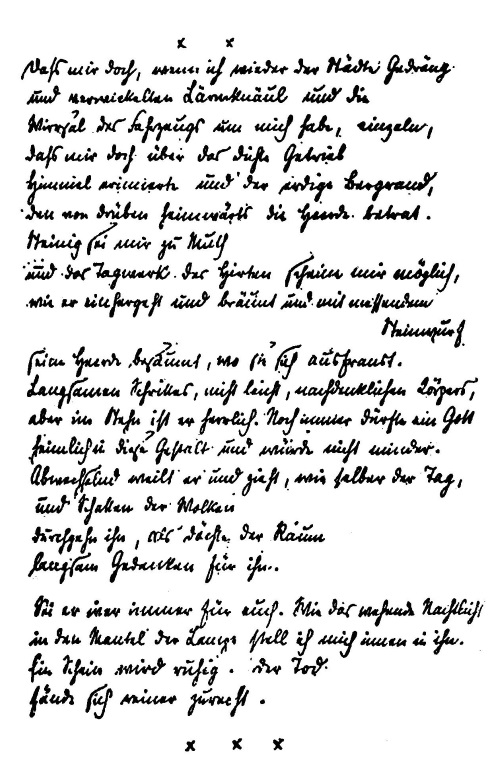 x x
Daß mir doch, wenn ich wieder der Städte Gedräng
und verwickelten Lärmknäul und die
Wirrsal des Fahrzeugs um mich habe, einzeln,
daß mir doch über das dichte Getrieb
Himmel erinnerte und der erdige Bergrand,
den von drüben heimwärts die Heerde betrat.
Steinig sei mir zu Muth
und das Tagwerk des Hirten scheine mir möglich,
wie er einhergeht und bräunt und mit messendem
Steinwurf
seine Heerde besäumt, wo sie sich ausfranst.
Langsamen Schrittes, nicht leicht, nachdenklichen Körpers,
aber im Stehn ist er herrlich. Noch immer dürfte ein Gott
heimlich in diese Gestalt und würde nicht minder.
Abwechselnd weilt er und zieht, wie selber der Tag,
und Schatten der Wolken
durchgehn ihn, als dächte der Raum
langsam Gedanken für ihn.
Sei er wer immer für euch. Wie das wehende Nachtlicht
in den Mantel der Lampe stell ich mich innen in ihn.
Ein Schein wird ruhig. Der Tod
fände sich reiner zurecht.
x x x